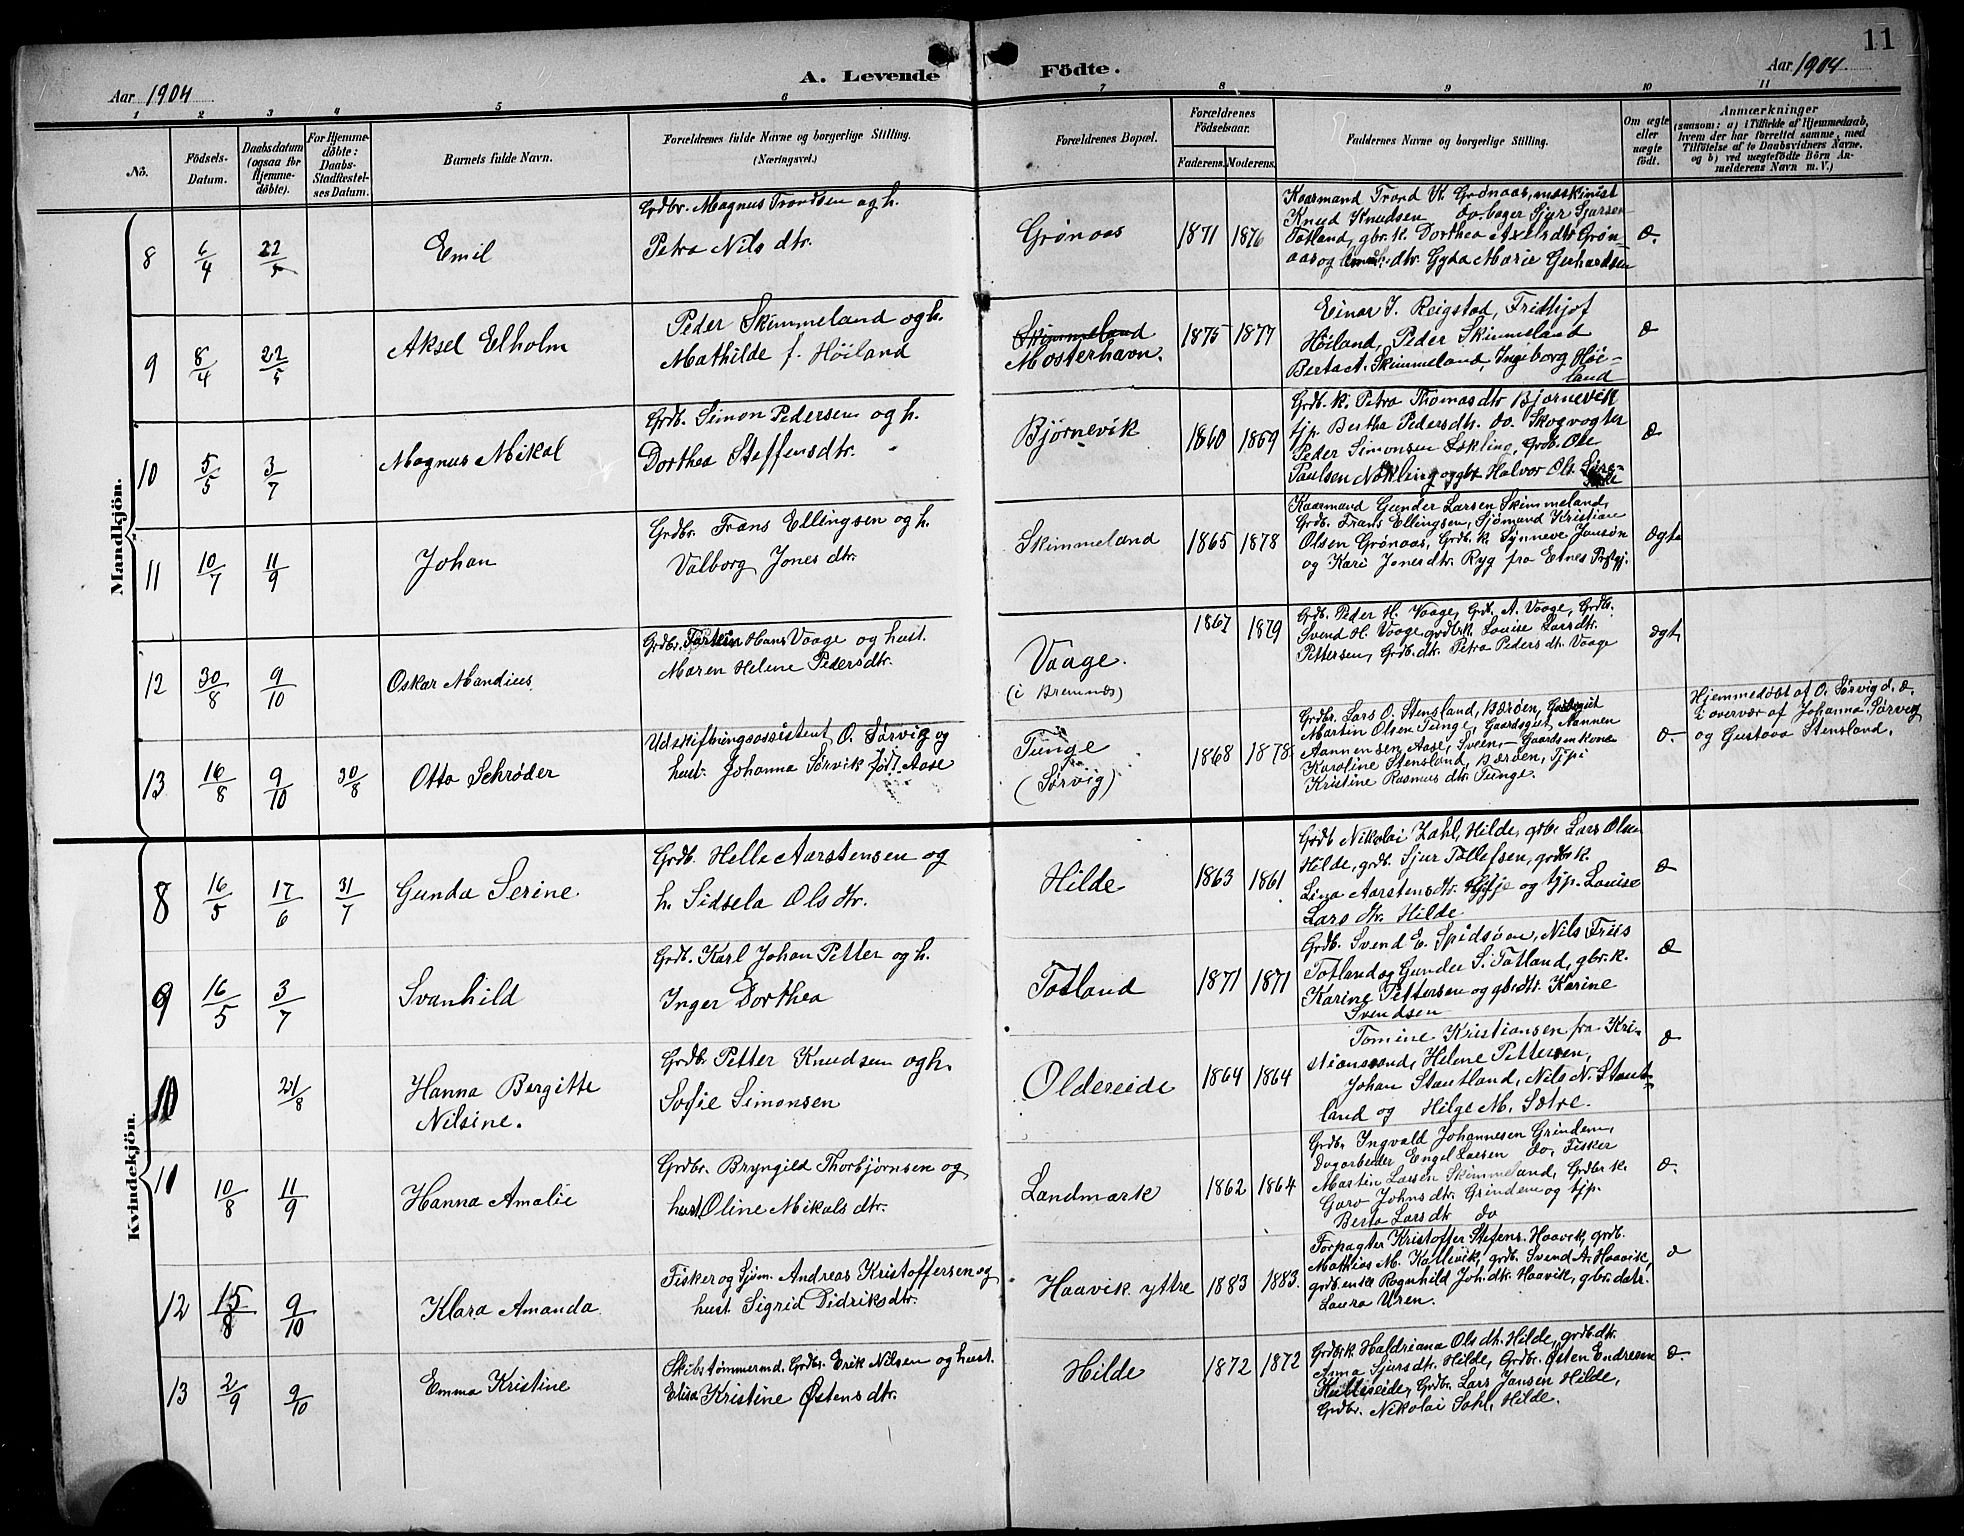 11
Aar 1904
A. Levende Födte.
Aar 1904
1 2 3 4 5 6 7 8 9 10 11
No.
Födsels-
Datum.
Daabsdatum
(ogsaa for
Hjemme-
døbte).
For Hjemme-
døbte:
Daabs-
Stadfæstel-
ses Datum.
Barnets fulde Navn.
Forældrenes fulde Navne og borgerlige Stilling.
(Næringsvei.)
Forældrenes Bopæl.
Forældrenes
Födselsaar.
Faderens. Moderens.
Faddernes Navne og borgerlige Stilling.
Om ægte
eller
uægte
født.
Anmærkninger
(saasom: a) i Tilfælde af Hjemmedaab,
hvem der har forrettet samme, med
Tilföielse af to Daabsvidners Navne.
og b) ved uægtefödte Börn An-
melderens Navn m. V.)
Mandkjön.
8 6/4 22/5
Emil
Grdbr. Magnus Trondsen og h.
Petra Nils dtr.
Grønaas
1871 1876
Kaarmand Trond K. Grønaas, maskinist
Knud Knudsen do. bager Sjur Sjursen
Totland, gbr. k. Dorthea Axels dtr Grøn-
aas og dtr. Gyda Marie Gerhardsen
Æ.
9 8/4 22/5
Aksel Elholm
Peder Skimmeland og h.
Mathilde f. Höiland
Skimmeland
Mosterhavn.
1875 1877
Einar J. Reigstad, Fridtjof
Höiland, Peder Skimmeland
Berta A. Skimmeland, Ingeborg Höi-
land
Æ
10 5/5 3/7
Magnus Mikal
Grdb. Simon Pedersen og h.
Dorthea Steffensdtr.
Bjørnevik
1860 1859
Grdb. k. Petra Thomasdtr Bjørnevik
tjp. Bertha Pedersdtr. do. Skogvogter
Peder Simonsen Løkling, Grdb. Ole
Paulsen Nøkling og gbr Halvor Ols.
Æ
11 10/7 11/9
Johan
Grdbr. Frans Ellingsen og h.
Valborg Jones dtr.
Skimmeland
1865 1878
Kaarmand Gunder Larsen Skimmeland,
Grdb. Frans Ellingsen, Sjømand Kristian
Olsen Grønaas, Grdb. k. Synneve Jansøn
og Kari Jonesdtr. Ryg fra Etnes Prstgj.
Ægte
12 30/8 9/10
Oskar Mandius
Grdbr. Torstein Hans Vaage og hust.
Maren Helene Pedersdtr.
Vaage.
(i Bremnæs)
1867 1879
Grdb. Peder H. Vaage, Grdb. A. Vaage, Grdb.
Svend H. Vaage, grdb.k. Louise Larsdtr.
Pettersen, Grdb. dtr. Petra Peders dtr. Vaage
Ægt,
13 16/8 9/10 30/8
Otto Schrøder
Udskiftningsassistent O. Sørvig og
hust. Johanna Sørvik født Aase
Tunge
(Sørvig)
1868 1878
Grdbr. Lars O. Stensland, Bærøen, Gaardsgut
Martin Olsen Tunge, Gaardsgut Aannen
Aannensen Aase, Sveen, - Gaardsenkone
Karoline Stensland, Bærøen, Tjpi
Kristine Rasmus dtr. Tunge.
Æ.
Hjemmedøbt af O. Sørvig d. æ.
i overvær af Johanna Sørvig
og Gustava Stensland.
Kvindekjön.
8 16/5 17/6 31/7
Gunda Serine
Grdb. Helle Aarstensen og
h. Sidsela Ols dtr.
Hilde
1863 1861
Grdb Nikolai Zahl, Hilde, grbr Lars Olsen
Hilde, grdb. Sjur Tollefsen, grdbr k.
Lina Aarstensdtr. og tjp. Louise
Lars dtr. Hilde
Æ
9 16/5 3/7
Svanhild
Grdb. Karl Johan Petter og h.
Inger Dorthea
Totland
1871 1871
Grdb. Svend E. Spidsøen, Nils Friis
Totland og Gunder S. Totland, gbr. k.
Karine Pettersen og gbrdtr. Karine
Svendsen
Æ
10 21/8
Hanna Bergitte
Nilsine.
Grdbr Petter Knudsen og h.
Sofie Simonsen
Oldereide
1864 1864
Tomine Kristiansen fra Kri-
stianssand, Helene Pettersen,
Johan Stautland, Nils N. Staut-
land og Hilge M. Sætre.
Æ
11 10/8 11/9
Hanna Amalie
Grdbr. Bryngild Thorbjørnsen og
hust Oline Mikals dtr.
Landmark
1862 1864
Grdbr. Ingvald Johannesen Grindem,
Dagarbeider Engel Larsen do, Fisker
Martin Larsen Skimmeland, Grdbr k.
Guro Johnsdtr. Grindem og tjp.
Berta Larsdtr do
Æ.
12 15/8 9/10
Klara Amanda
Fisker og Sjøm. Andreas Kristoffersen og
hust Sigrid Didriksdtr.
Haavik yttre
1883 1883.
Forpagter Kristoffer Stefens. Haavik, grdb.
Mathias M. Kallevik, grdb. Svend A. Haavik,
grdb. enke Ragnhild Joh.dtr. Haavik, gbr. datr.
Laura Uren.
Æ
13 2/9 9/10
Emma Kristine
Skibstømmermd. Grdbr. Erik Nilsen og hust.
Elisa Kristine Østensdtr.
Hilde
1872 1872
Grdbr.k Haldriana Ols dtr. Hilde, grdb. dtr.
Anna Sjursdtr. Hilde, Grdbr. Østen Endresen
Kulleseide, Grdbr. Lars Jansen Hilde,
Grdbr. Nikolai Sahl, Hilde.
Æ.